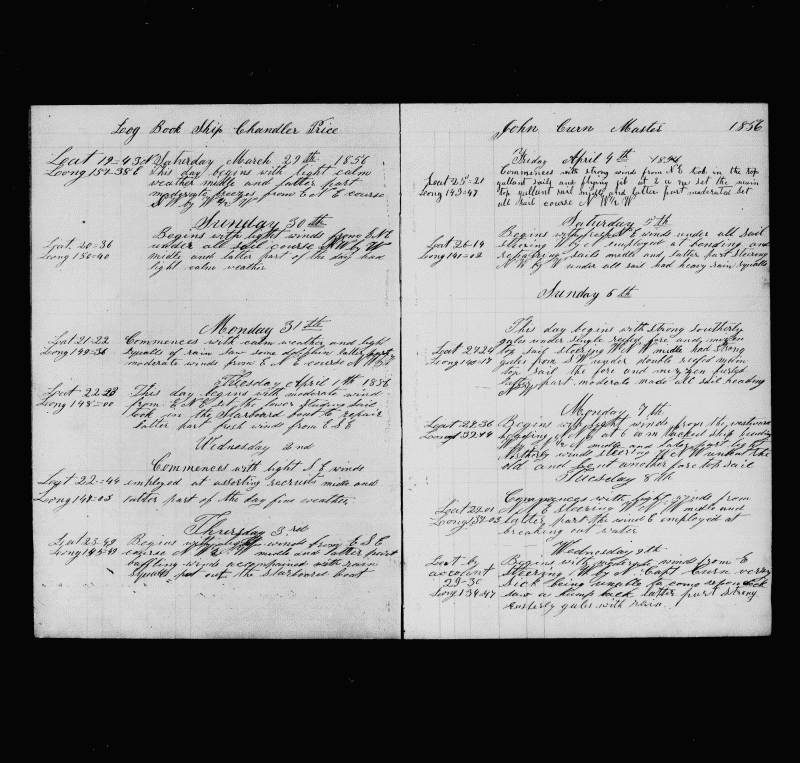 Log Book Ship Chandler Price
Saturday March 29th 1856
Lat 19-43 N
Long 152-38 E
This day begins with light calm
weather middle and latter part
moderate breezes from E at E course
N W by W
Sunday 30th
Begins with light winds from E N E
Lat 20-36 under all sail course N W by W
Long 150-40 middle and latter part of the day had
light calm weather
Monday 31th
Lat 21-22 Commences with calm weather and light
Long 149-36 squalls of rain saw some dolphin latter part
moderate winds from E N E course N W
Tuesday April 1th 1856
Lat 22-23 This day begins with moderate wind
Long 148-00 from E N E set the lower studing sail
took in the Starboard boat to repair
latter part fresh wind from E S E
Wednesday 2nd
Commences with light S E winds
Lat 22-44 employed at assorting recruits midle and
Long 147-03 latter part of the day fine weather
Thursday 3rd
Lat 23-49 Begins with light winds from E S E
Long 145-49 course N W W midle and latter part
baffling winds accompanied with rain
squalls put out the Starboard boat
John Curn Master 1856
Friday April 4th 1856
Commences with strong wind from N E took in the top
Lat 25-21 gallant sails and flying jib at set the main
Long 143-47 top gallant sail midle and latter part moderated set
all sail course N W W
Saturday 5th
Begins with E winds under all sail
Lat 26-14 steering W by N employed at bending and
Long 141-02 repairing sails midle and latter part steering
N W by W under all sail had heavy rain squalls
Sunday 6th
This day begins with strong Southerly
gales under single reefed fore and mizen
Lat 27-24 top sail steering W N W midle had strong
Long 140-17 gales from S W under double reefed main
top sail the fore and mizzen furled
latter part moderate made all sail heading
N W
Monday 7th
Lat 28-36 Begins with light winds from the westward
Long 139-44 heading N at 6 am tacked ship heading
W midle and latter part light
Northerly winds steering W N W unbent the
old and bent another fore top sail
Tuesday 8th
Commences with light winds from
Lat 29-01 N N E steering W N W midle and
Long 137-03 latter part the wind E employed at
breaking out water
Wednesday 9th
Lat by Begins with moderate wind from E
account steering W by N Capt Curn very
29-30 sick being unable to come upon deck
Long 134-47 saw a hump back latter part strong
Easterly gales with rain